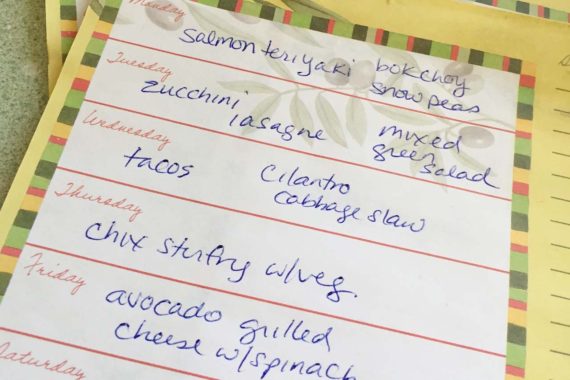 Monday
salmon teriyaki bokchoy
snow peas
Tuesday
zucchini
lasagne
mixed
green
salad
Wednesday
tacos
cilantro
cabbage slaw
Thursday
chix stirfry w/veg.
Friday
avocado grilled
cheese w/spinach
Saturday